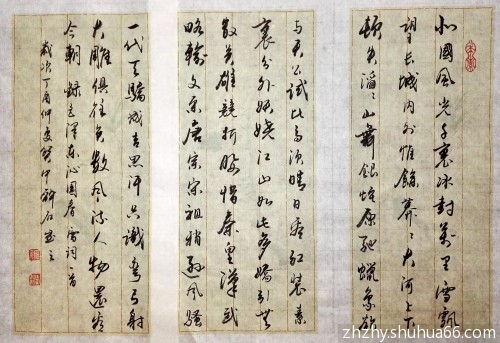 北國風光千裏冰封萬里雪飄
望長城内外惟餘莽々大河上下
頓失滔々山舞銀蛇原馳蠟象欲
与天公試比高須晴日看紅裝素
裹分外妖嬈江山如此多嬌引無
數英雄競折腰惜秦皇漢武
略輸文采唐宗宋祖稍遜風騷
一代天驕成吉思汗只識彎弓射
大雕俱往矣數風流人物還看
今朝 録毛澤東沁園春雪詞一首
歲次丁酉仲夏
zhzhy.shuhua66.com